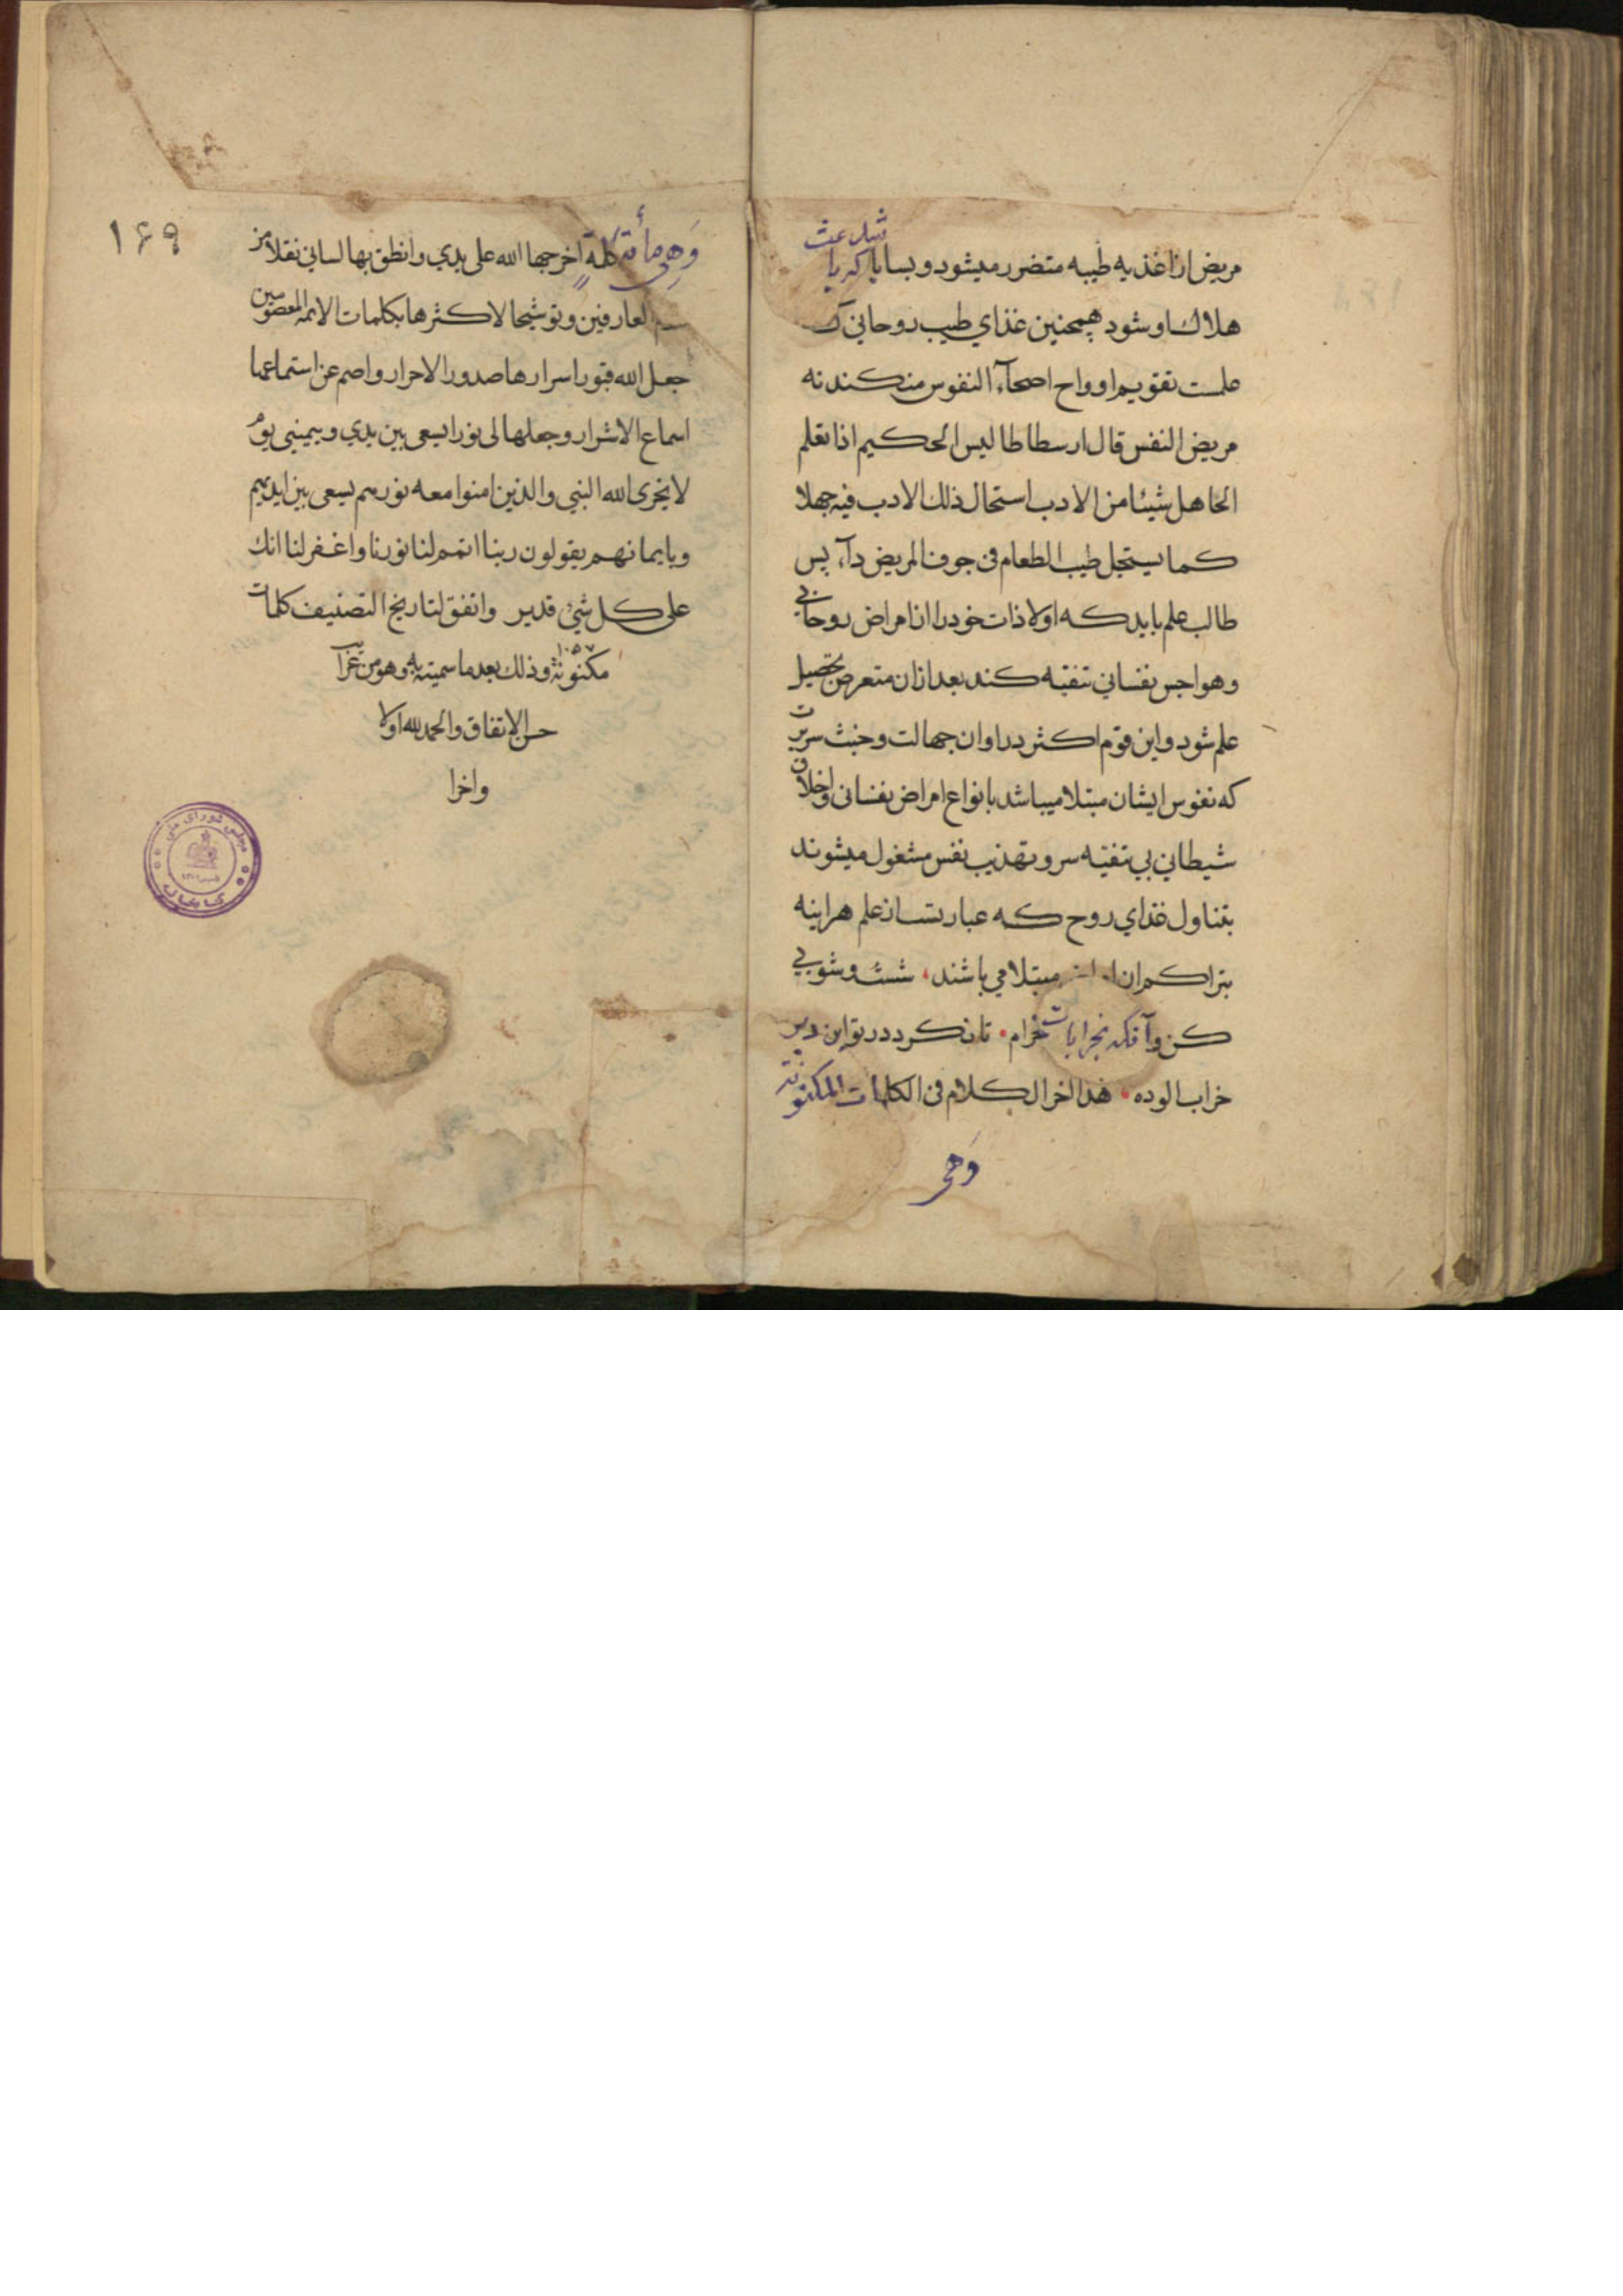 مریض از اغذیه طیبه متضرر میشود و بسا باشد که باعث
هلاک او شود همچنین غذای طیب روحانی که
علمست تقویم ارواح اصحاء النفوس میکند نه
مریض النفس قال ارسطاطالیس الحکیم اذا تعلم
الجاهل شیئا من الادب استحال ذلک الادب فیه جهلا
کما یستحیل طیب الطعام فی جوف المریض داء پس
طالب علم باید که اولا ذات خود را از امراض روحانی
و هواجس نفسانی تنقیه کند بعد از ان متعرض تحصیل
علم شود و این قوم اکثر در اوان جهالت و خبث سریرت
که نفوس ایشان مبتلا میباشد بانواع امراض نفسانی و اخلاق
شیطانی بی تنقیه سر و تهذیب نفس مشغول میشوند
بتناول غذای روح که عبارتست از علم هراینه
بتراکم ان مبتلا می باشند شست و شویی
کن و آنکه بخرابات خرام تا نکردد ز تو این دیر
خراب الوده هذا اخر الکلام فی الکلمات المکنونة
وَهی
۱۶۹
وَهِی مأئة کلمة اخرجها الله علی یدی وانطق بها لسانی نقلا من
العارفین و توشیحا لاکثرها بکلمات الائمة المعصومین
جعل الله قبور اسرارها صدور الاحرار واصم عن استماعها
اسماع الاشرار وجعلها لی نورا یسعی بین یدی وبیمینی یوم
لا یخزی الله النبی والذین امنوا معه نورهم یسعی بین ایدیهم
وبایمانهم یقولون ربنا اتمم لنا نورنا واغفر لنا انک
علی کل شئ قدیر واتفق لتاریخ التصنیف کلمات
مکنونة ۱۰۵۷ وذلک بعد ما سمیته به وهو من غرایب
حسن الاتفاق والحمد لله اولا
واخرا
مجلس شورای ملی
کتابخانه